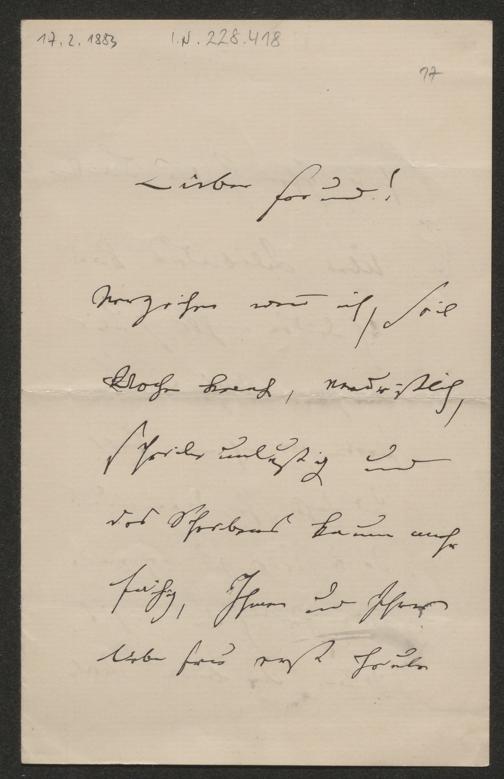 17.2.1883 I.N. 228.418
77
Lieber Freund!
Verzeihen wenn ich, seit
Woche krank,
schreibunlustig und
des Schreibens kaum mehr
fähig, Ihnen und Ihrer
lieben Frau erst heute